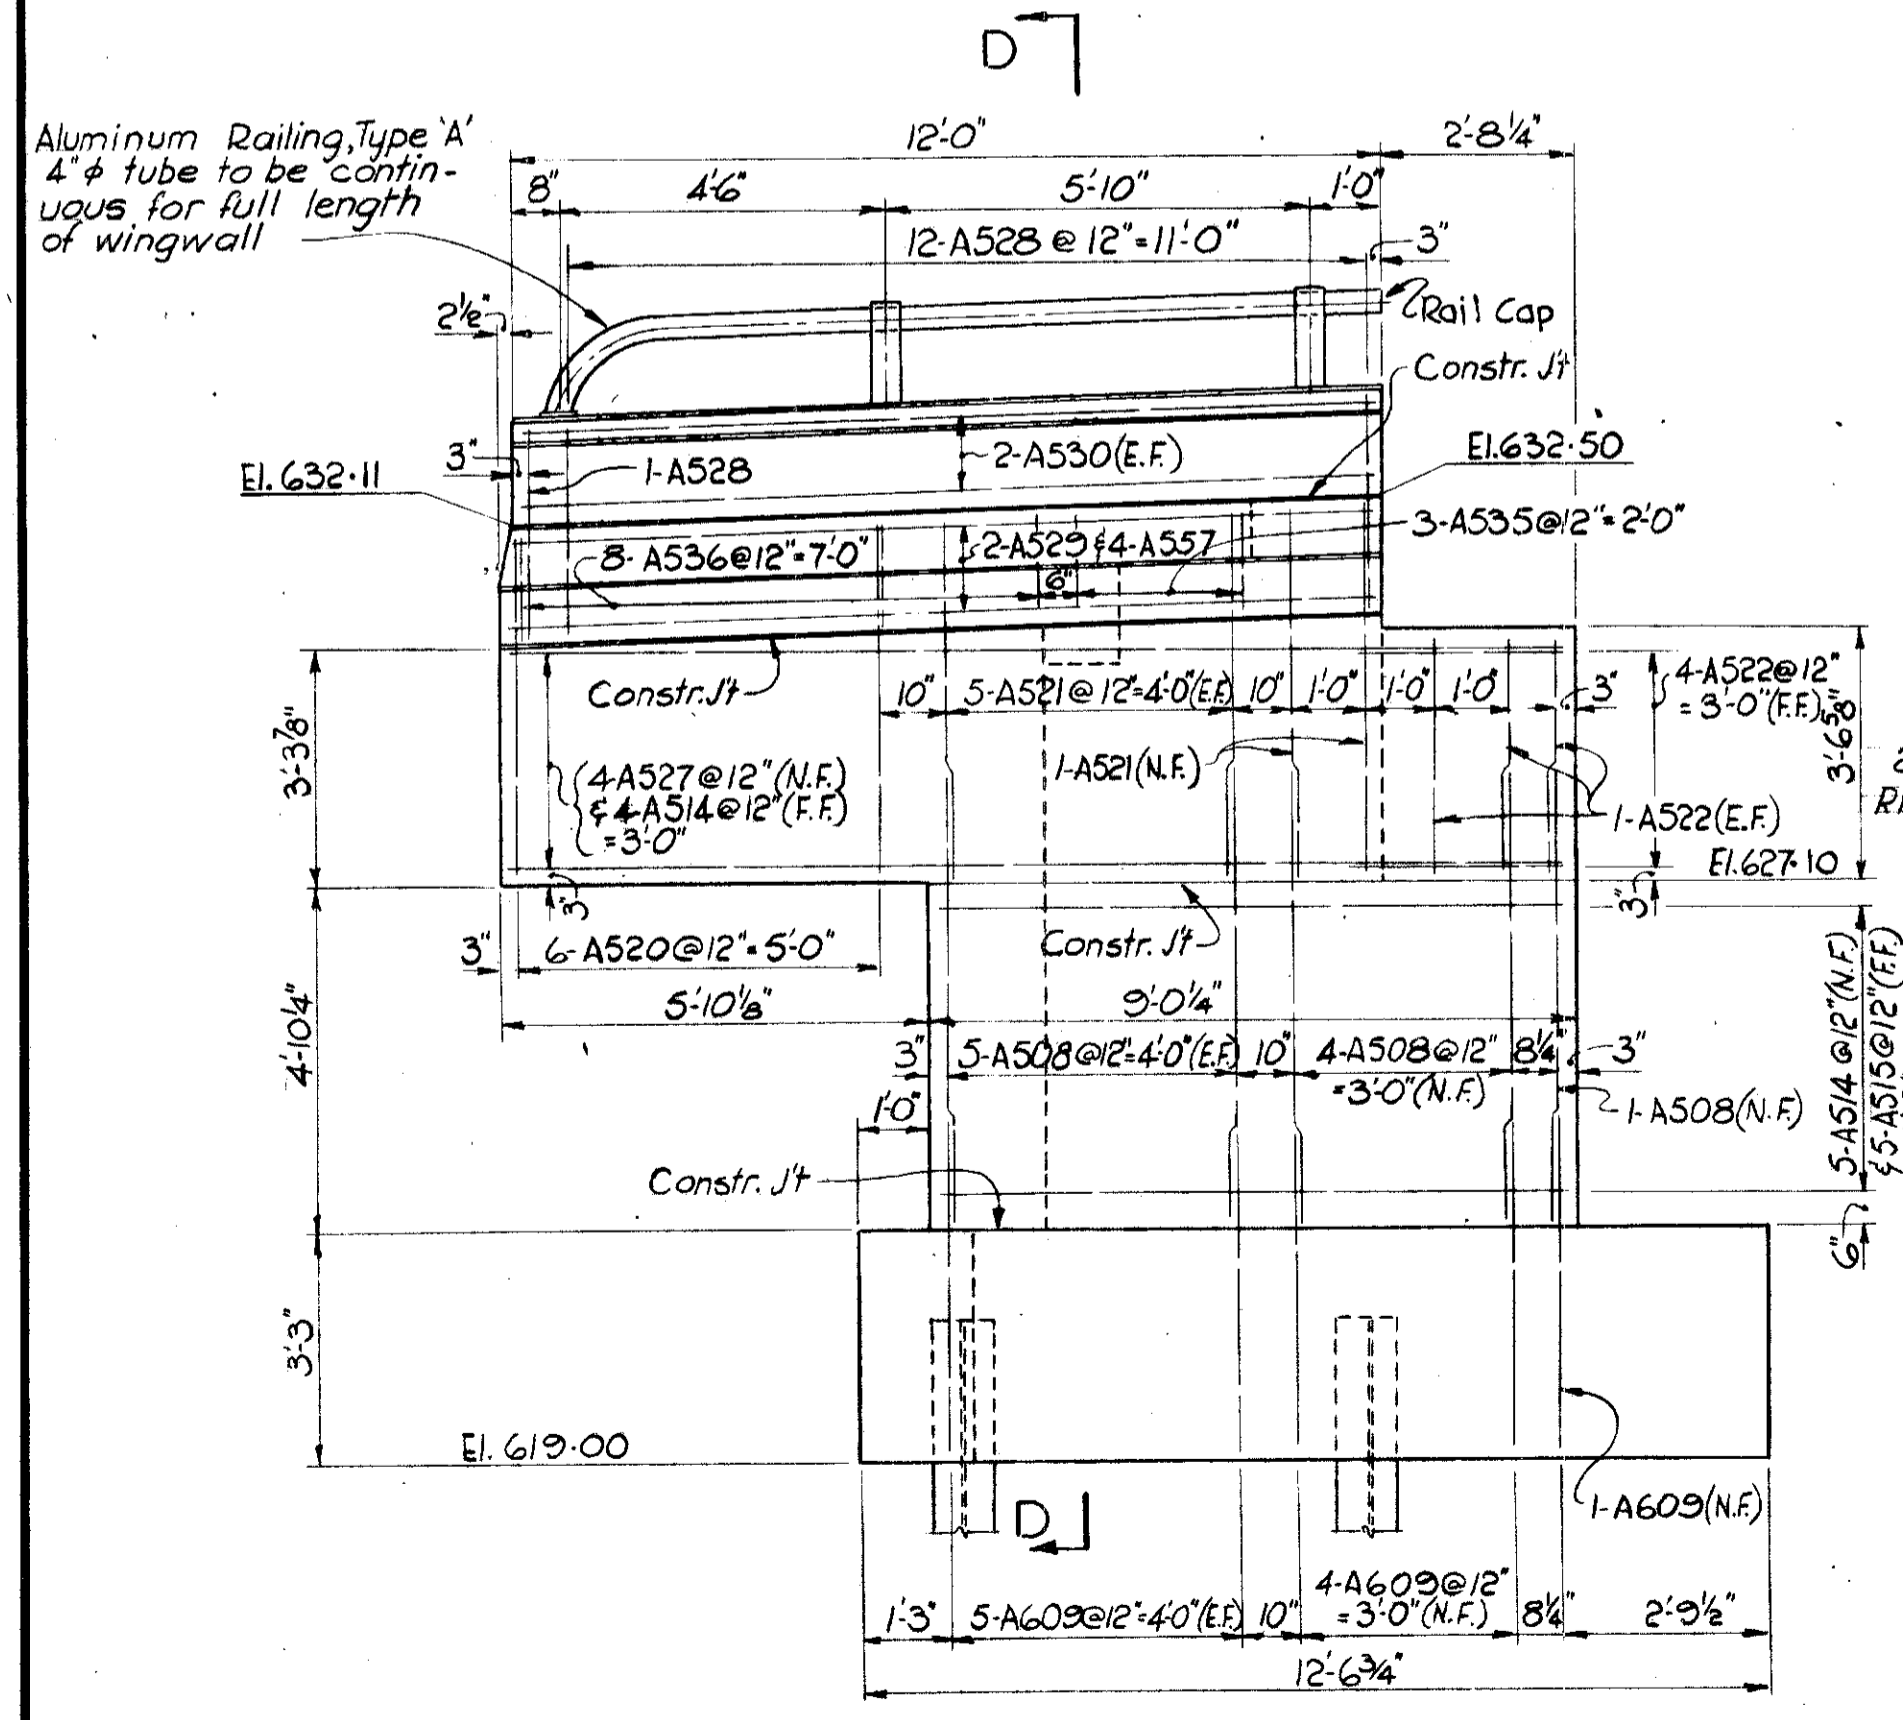 D
Aluminum Railing, Type 'A'
4"ϕ tube to be contin-
uous for full length
of wingwall
12'-0"
2'-8¼"
8"
4'-6"
5'-10"
1'-0"
12-A528 @ 12"=11'-0"
3"
2½"
Rail Cap
Constr. J't
El. 632.11
3"
1-A528
2-A530 (E.F.)
El. 632.50
8-A536@12"=7'-0"
2-A529 & 4-A557
3-A535@12"=2'-0"
6"
Constr. J't
10"
5-A521@12"=4'-0"(E.F.)
10"
1'-0"
1'-0"
1'-0"
3"
4-A522@12"
=3'-0"(F.F.)
3'-3⅞"
4-A527@12"(N.F.)
& 4-A514@12"(F.F.)
=3'-0"
1-A521(N.F.)
3'-6⅝"
1-A522(E.F.)
El. 627.10
3"
3"
3"
6-A520@12"=5'-0"
Constr. J't
5'-10⅛"
9'-0¼"
4'-10¼"
3"
5-A508@12"=4'-0"(E.F.)
10"
4-A508@12"
=3'-0"(N.F.)
8¼"
3"
1-A508(N.F.)
5-A514@12"(N.F.)
& 5-A515@12"(F.F.)
1'-0"
Constr. J't
6"
3'-3"
El. 619.00
D
1-A609(N.F.)
1'-3"
5-A609@12"=4'-0"(E.F.)
10"
4-A609@12"
=3'-0"(N.F.)
8¼"
2'-9½"
12'-6¾"